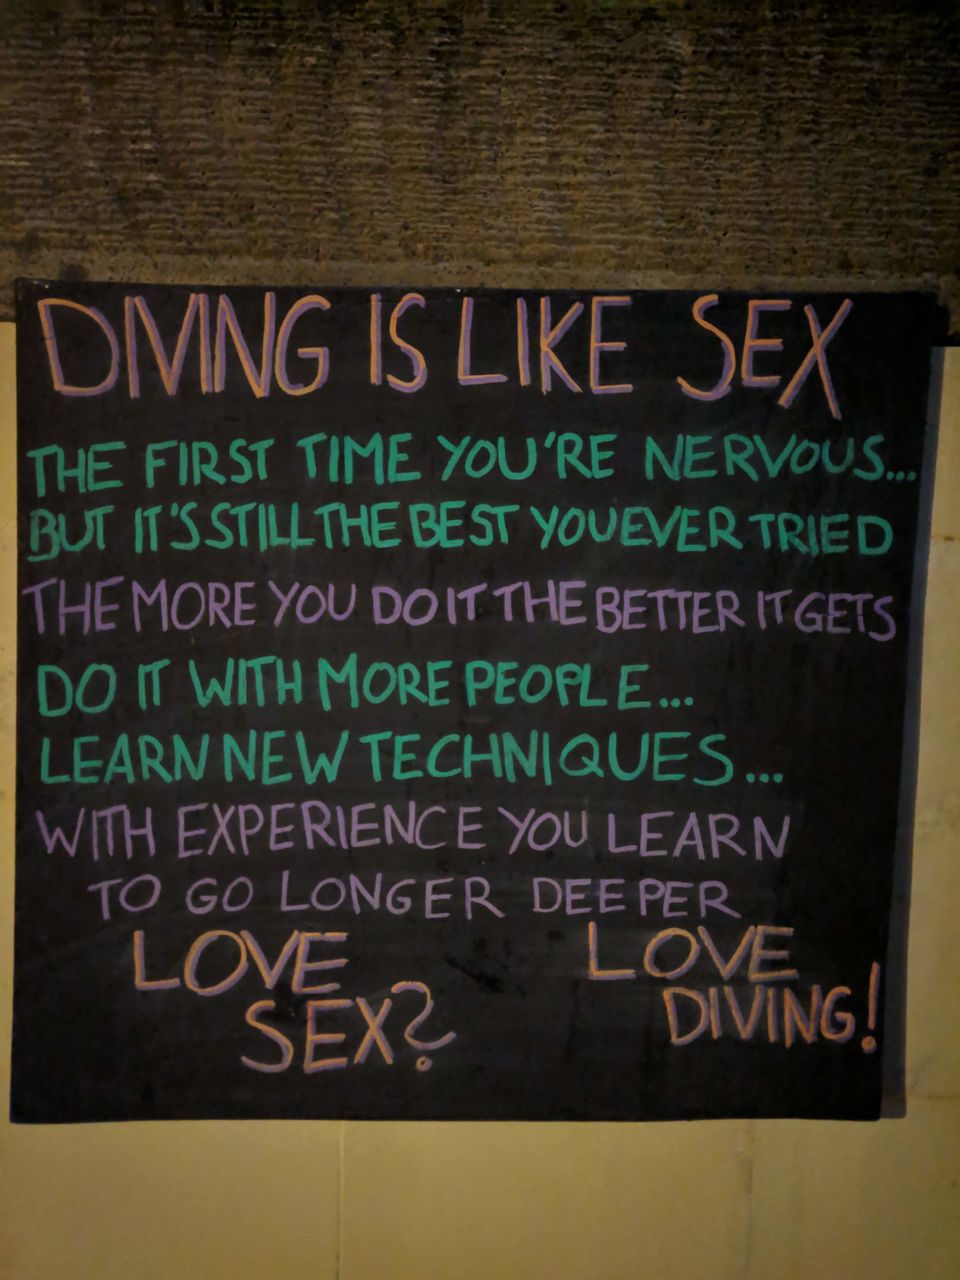 DIVING IS LIKE SEX
THE FIRST TIME YOU'RE NERVOUS...
BUT IT'S STILL THE BEST YOU EVER TRIED
THE MORE YOU DO IT THE BETTER IT GETS
DO IT WITH MORE PEOPLE...
LEARN NEW TECHNIQUES...
WITH EXPERIENCE YOU LEARN
TO GO LONGER DEEPER
LOVE
SEX?
LOVE
DIVING!